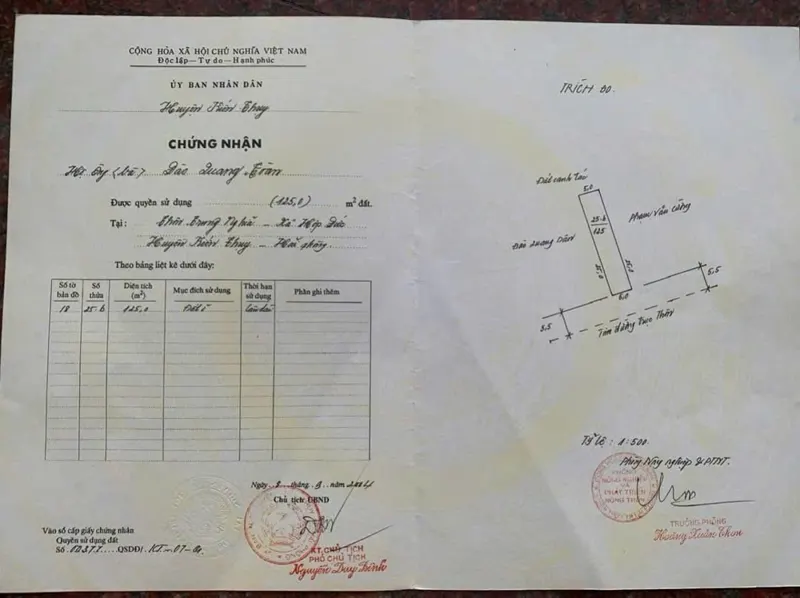 CỘNG HÒA XÃ HỘI CHỦ NGHĨA VIỆT NAM
Độc lập — Tự do — Hạnh phúc
ỦY BAN NHÂN DÂN
Huyện Kiến Thụy
CHỨNG NHẬN
Hộ Ông (bà) Đào Quang
Được quyền sử dụng (125,0) m² đất.
Tại : Thôn Trung Nghĩa - Xã Hợp Đức
Huyện Kiến Thụy - Hải phòng
Theo bảng liệt kê dưới đây:
Số tờ bản đồ Số thửa Diện tích (m²) Mục đích sử dụng Thời hạn sử dụng Phần ghi thêm
18 25.b 125,0 Đất ở Lâu dài
Ngày tháng năm 2004
Chủ tịch UBND
KT. CHỦ TỊCH
PHÓ CHỦ TỊCH
Nguyễn Duy Bình
Vào sổ cấp giấy chứng nhận
Quyền sử dụng đất
Số QSDĐ/
TRÍCH ĐO
Đất canh tác
5,0
Phạm Văn Công
25.b
125
Đào Quang
25,0
25,0
5,0
5,5
5,5
Tim đường trục thôn
Tỷ lệ : 1:500
Phòng Nông nghiệp & PTNT.
PHÒNG
NÔNG NGHIỆP
VÀ
PHÁT TRIỂN
NÔNG THÔN
TRƯỞNG PHÒNG
Hoàng Xuân